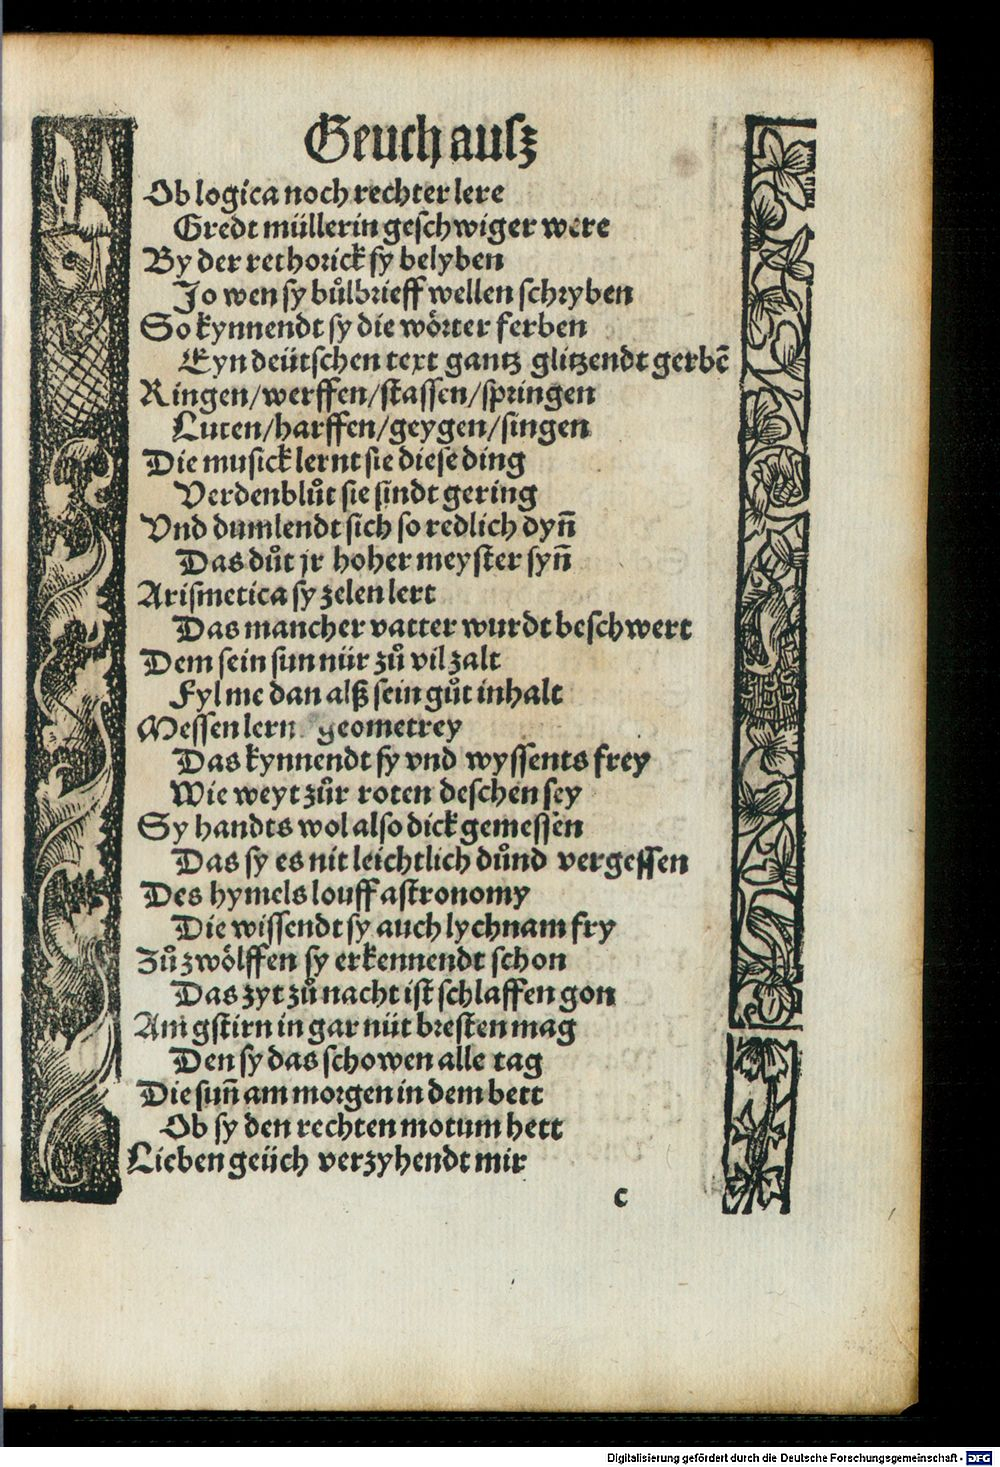 Geuch ausz
Ob logica noch rechter lere
Gredt müllerin geschwiger were
By der rethorick sy belyben
Jo wen sy bůlbrieff wellen schryben
So kynnendt sy die wörter ferben
Eyn deütschen text gantz glitzendt gerbē
Ringen/werffen/stassen/springen
Luten/harffen/geygen/singen
Die musick lernt sie diese ding
Verdenblůt sie sindt gering
Vnd dumlendt sich so redlich dyn̄
Das důt jr hoher meyster syn̄
Arismetica sy zelen lert
Das mancher vatter wurdt beschwert
Dem sein sun nür zů vil zalt
Fyl me dan alß sein gůt inhalt
Messen lern geometrey
Das kynnendt sy vnd wyssents frey
Wie weyt zůr roten deschen sey
Sy handts wol also dick gemessen
Das sy es nit leichtlich důnd vergessen
Des hymels louff astronomy
Die wissendt sy auch lychnam fry
Zů zwölffen sy erkennendt schon
Das zyt zů nacht ist schlaffen gon
Am gstirn in gar nüt bresten mag
Den sy das schowen alle tag
Die sun̄ am morgen in dem bett
Ob sy den rechten motum hett
Lieben geüch verzyhendt mir
c
Digitalisierung gefördert durch die Deutsche Forschungsgemeinschaft - DFG